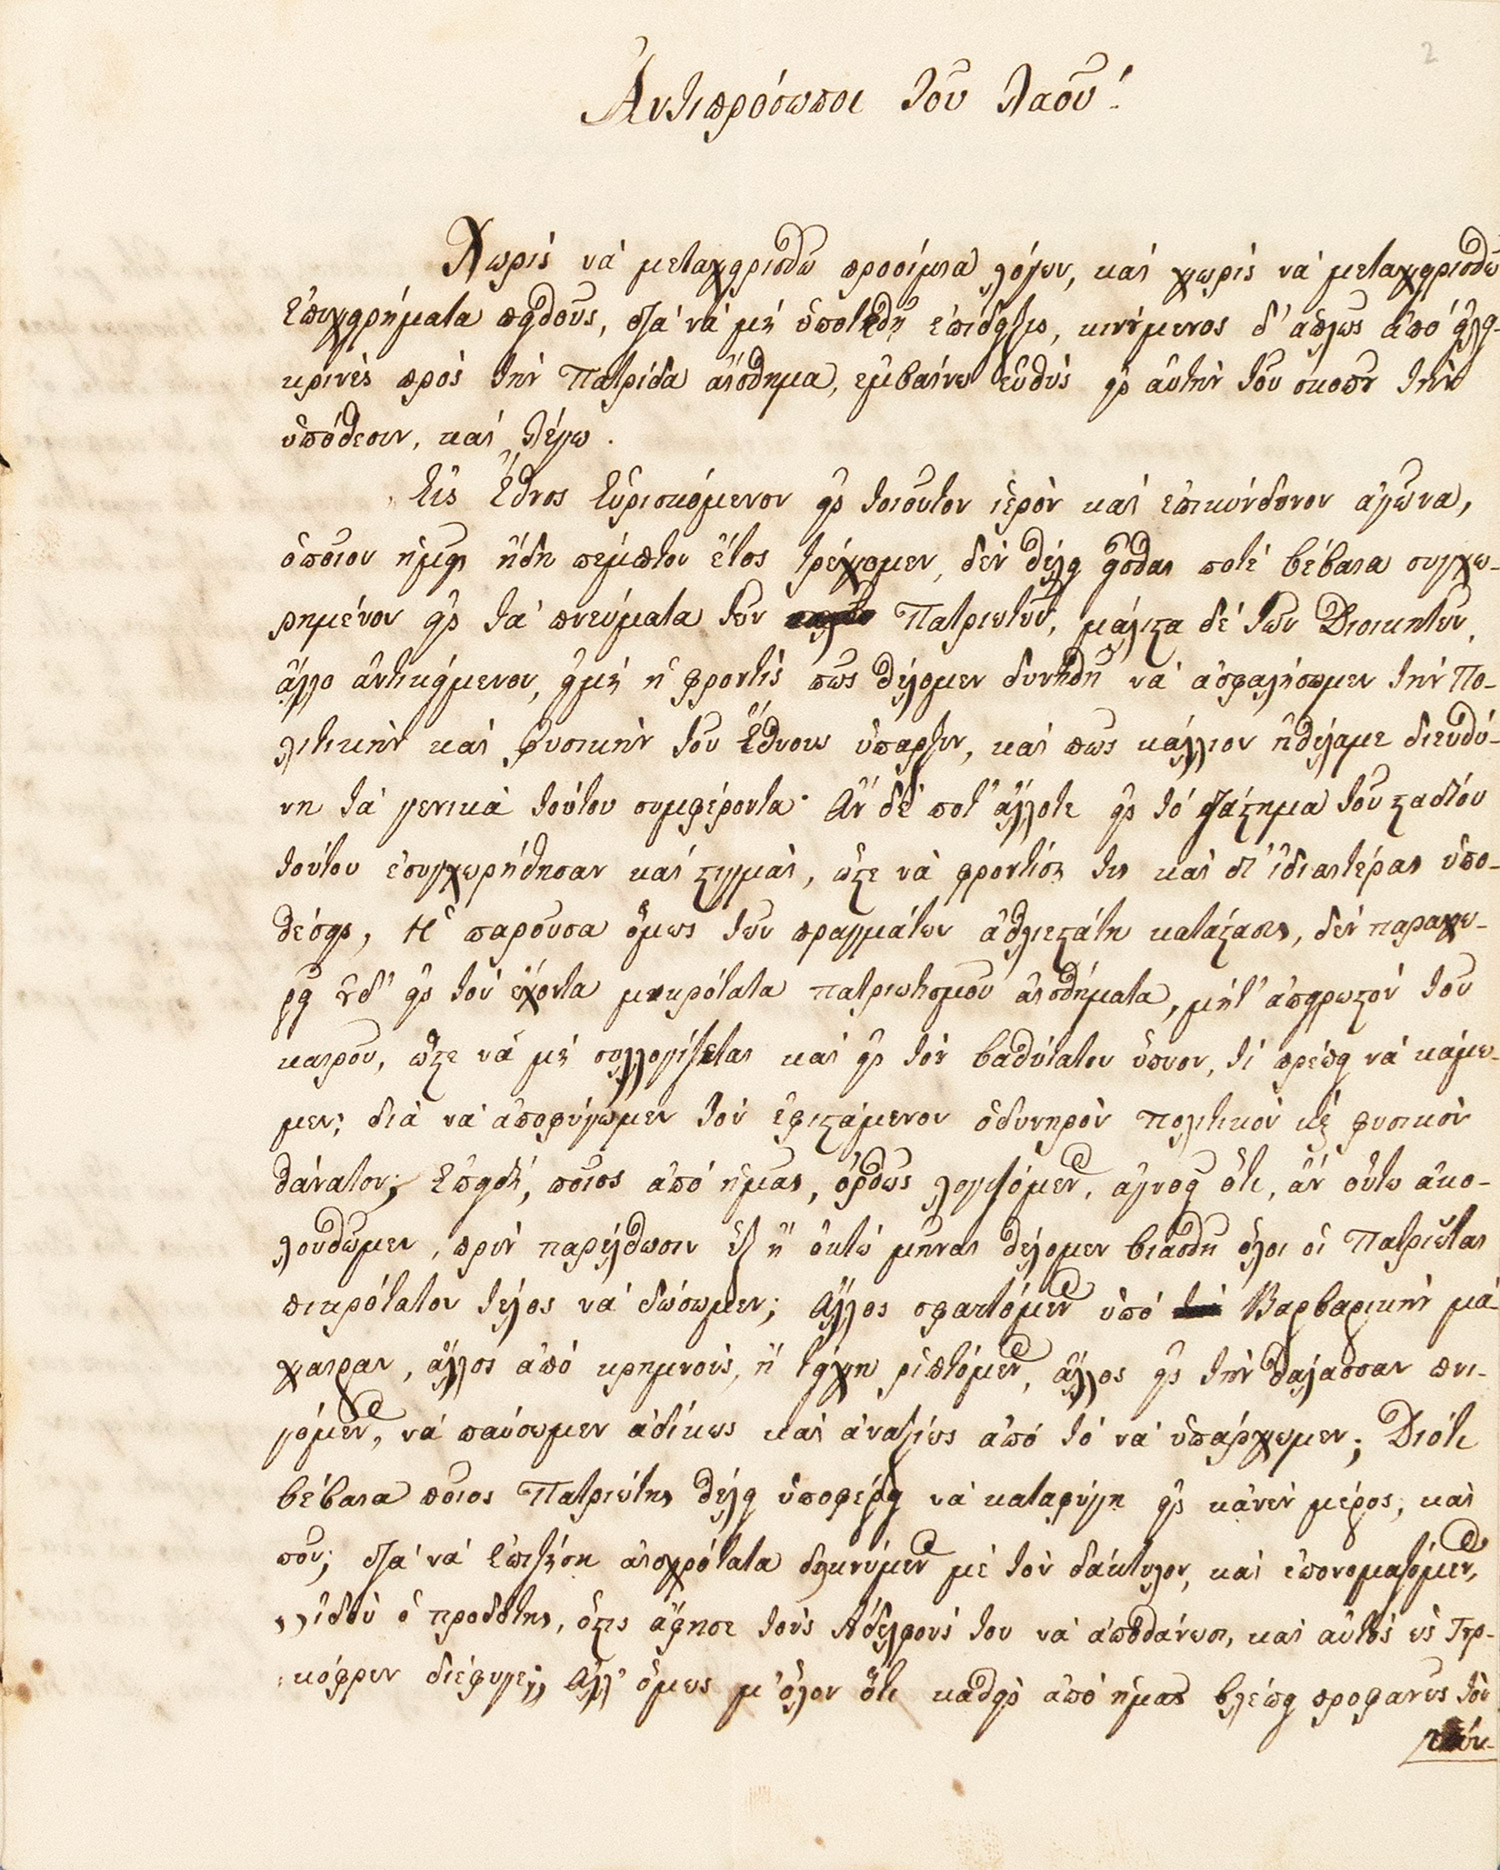 2
Ἀντιπρόσωποι τοῦ λαοῦ!
Χωρὶς νὰ μεταχειρισθῶ προοίμια λόγων, καὶ χωρὶς νὰ μεταχειρισθῶ
ἐπιχειρήματα πάθους, διὰ νὰ μὴ ὑποτεθῇ ἐπίδειξις, κινούμενος δ' ἁπλῶς ἀπὸ εἰλι-
κρινὲς πρὸς τὴν Πατρίδα αἴσθημα, ἐμβαίνω εὐθὺς εἰς αὐτὴν τοῦ σκοποῦ τὴν
ὑπόθεσιν, καὶ λέγω.
Εἰς Ἔθνος εὑρισκόμενον εἰς τοιοῦτον ἱερὸν καὶ ἐπικίνδυνον ἀγῶνα,
ὁποῖον ἡμεῖς ἤδη πέμπτον ἔτος τρέχομεν, δὲν θέλει εἶσθαι ποτὲ βέβαια συγχω-
ρημένον εἰς τὰ πνεύματα τῶν Πατριωτῶν, μάλιστα δὲ τῶν Διοικητῶν,
ἄλλο ἀντικείμενον, εἰμὴ ἡ φροντὶς πῶς θέλομεν δυνηθῆ νὰ ἀσφαλήσωμεν τὴν Πο-
λιτικὴν καὶ φυσικὴν τοῦ Ἔθνους ὕπαρξιν, καὶ πῶς κάλλιον ἠθέλαμε διευθύ-
νῃ τὰ γενικὰ τούτου συμφέροντα· Ἂν δέ ποτ' ἄλλοτε εἰς τὸ διάστημα τοῦ σταδίου
τούτου ἐσυγχωρήθησαν καὶ στιγμαὶ, ὥστε νὰ φροντίσῃ τις καὶ δι' ἰδιαιτέρας ὑπο-
θέσεις, Ἡ παροῦσα ὅμως τῶν πραγμάτων ἀθλιεστάτη κατάστασις, δὲν παραχω-
ρεῖ οὐδ' εἰς τὸν ἔχοντα μικρότατα πατριωτισμοῦ αἰσθήματα, μήτ' ἀπειροστὸν τοῦ
καιροῦ, ὥστε νὰ μὴ συλλογίζεται καὶ εἰς τὸν βαθύτατον ὕπνον, τί πρέπει νὰ κάμω-
μεν; διὰ νὰ ἀποφύγωμεν τὸν ἐφιστάμενον ὀδυνηρὸν πολιτικὸν κὲ φυσικὸν
θάνατον; Ἐπειδὴ, ποῖος ἀπὸ ἡμᾶς, ὀρθῶς λογιζόμενος, ἀγνοεῖ ὅτι, ἂν οὕτω ἀκο-
λουθῶμεν, πρὶν παρέλθωσιν ἓξ ἢ ὀκτὼ μῆνας θέλομεν βιασθῆ ὅλοι οἱ Πατριῶται
πικρότατον τέλος νὰ δώσωμεν; Ἄλλος σφαττόμενος ὑπὸ Βαρβαρικὴν μά-
χαιραν, ἄλλος ἀπὸ κρημνοὺς, ἢ τείχη ῥιπτόμενος, ἄλλος εἰς τὴν θάλασσαν πνι-
γόμενος, νὰ παύσωμεν ἀδίκως καὶ ἀναξίως ἀπὸ τὸ νὰ ὑπάρχωμεν; Διότι
βέβαια ποῖος Πατριώτης θέλει ὑποφέρει νὰ καταφύγῃ εἰς κἀνὲν μέρος, καὶ
ποῦ; διὰ νὰ ἐπιζήσῃ αἰσχρότατα δεικνυόμενος μὲ τὸν δάκτυλον, καὶ ἐπονομαζόμενος,
,,ἰδοὺ ὁ προδότης, ὅστις ἄφησε τοὺς Ἀδελφούς του νὰ ἀποθάνωσι, καὶ αὐτὸς ὡς Τουρ-
κόφρων διέφυγε;,, Ἀλλ' ὅμως μ' ὅλον ὅτι καθεὶς ἀπὸ ἡμᾶς βλέπει προφανῶς τὸν